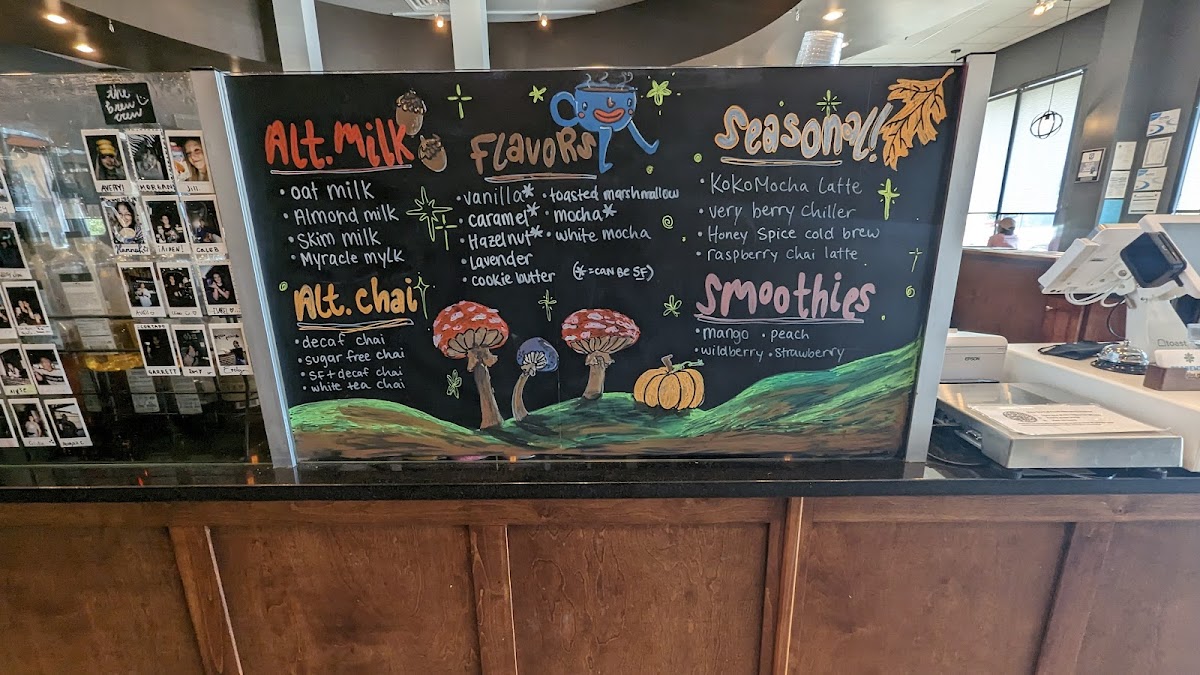 the
brew
crew
AVERY
MORGAN
Jill
Hannah
TAIDEN!
CALEB
GARRETT
Alt. Milk
• oat milk
• Almond milk
• Skim milk
• Myracle mylk
Alt. chai
• decaf chai
• sugar free chai
• SF + decaf chai
• white tea chai
Flavors
• vanilla* • toasted marshmallow
• caramel* • mocha*
• Hazelnut* • white mocha
• Lavender
• cookie butter (*=can be SF)
Seasonal!
• KoKo Mocha Latte
• very berry chiller
• Honey Spice cold brew
• raspberry chai latte
Smoothies
• mango • peach
• wildberry • strawberry
EPSON
toast